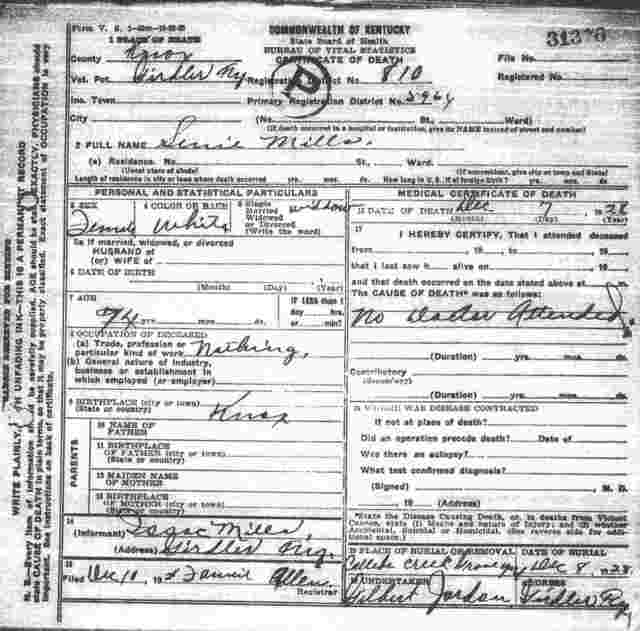 Form V. S. 1-
COMMONWEALTH OF KENTUCKY
State Board of Health
BUREAU OF VITAL STATISTICS
CERTIFICATE OF DEATH
1 PLACE OF DEATH
County Knox
File No.
Vot. Pct. Girdler Ky Registration District No. 810
Registered No.
Inc. Town Primary Registration District No.
City (No. St., Ward)
(If death occurred in a hospital or institution, give its NAME instead of street and number)
P
2 FULL NAME Mills.
(a) Residence. No. St., Ward.
(Usual place of abode) (If nonresident, give city or town and State)
Length of residence in city or town where death occurred yrs. mos. ds. How long in U. S., if of foreign birth? yrs. mos. ds.
PERSONAL AND STATISTICAL PARTICULARS
3 SEX
Female
4 COLOR OR RACE
White
5 Single
Married
Widowed
or Divorced
(Write the word)
widow
5a If married, widowed, or divorced
HUSBAND of
(or) WIFE of
6 DATE OF BIRTH
(Month) (Day) (Year)
7 AGE
yrs. mos. ds.
IF LESS than 1
day hrs.
or min.?
8 OCCUPATION OF DECEASED
(a) Trade, profession or
particular kind of work Nothing,
(b) General nature of industry,
business or establishment in
which employed (or employer)
9 BIRTHPLACE (city or town)
(State or country) Knox
PARENTS
10 NAME OF
FATHER
11 BIRTHPLACE
OF FATHER (city or town)
(State or country)
12 MAIDEN NAME
OF MOTHER
13 BIRTHPLACE
OF MOTHER (city or town)
(State or country)
14
(Informant) Isaac Mills,
(Address) Girdler Ky.
15
Filed Dec 10, 19 Allen
Registrar
MEDICAL CERTIFICATE OF DEATH
16 DATE OF DEATH Dec 7, 1928
(Month) (Day) (Year)
17
I HEREBY CERTIFY, That I attended deceased
from , 19 , to , 19
that I last saw h alive on , 19
and that death occurred on the date stated above at m.
The CAUSE OF DEATH* was as follows:
No Doctor Attended,
(Duration) yrs. mos. ds.
Contributory
(Secondary)
(Duration) yrs. mos. ds.
18 WHERE WAS DISEASE CONTRACTED
If not at place of death?
Did an operation precede death? Date of
Was there an autopsy?
What test confirmed diagnosis?
(Signed) , M. D.
, 19 (Address)
*State the Disease Causing Death, or, in deaths from Violent
Causes, state (1) Means and nature of Injury; and (2) whether
Accidental, Suicidal or Homicidal. (See reverse side for
additional space.)
19 PLACE OF BURIAL OR REMOVAL DATE OF BURIAL
Creek Dec 8, 1928
20 UNDERTAKER ADDRESS
Gilbert Jordon, Girdler Ky
MARGIN RESERVED FOR BINDING
WRITE PLAINLY, WITH UNFADING INK—THIS IS A PERMANENT RECORD
N. B.—Every item of information should be carefully supplied. AGE should be stated EXACTLY. PHYSICIANS should
state CAUSE OF DEATH in plain terms, so that it may be properly classified. Exact statement of OCCUPATION is very
important. See instructions on back of certificate.